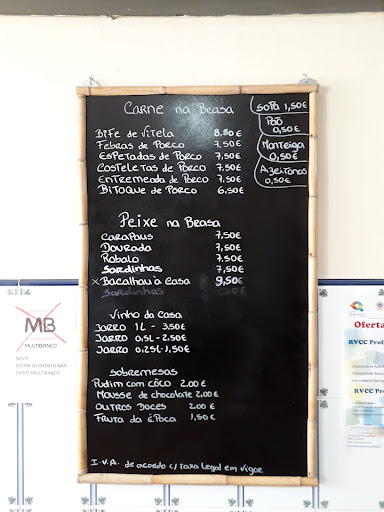 Carne na Brasa
Bife de Vitela 8,50€
Febras de Porco 7,50€
Espetadas de Porco 7,50€
Costeletas de Porco 7,50€
Entremeada de Porco 7,50€
Bitoque de Porco 6,50€
Sopa 1,50€
Pão
0,50€
Manteiga
0,50€
Azeitonas
0,50€
Peixe na Brasa
Carapaus 7,50€
Dourada 7,50€
Robalo 7,50€
Sardinhas 7,50€
x Bacalhau à Casa 9,50€
Sardinhas 7,50€
Vinho da Casa
Jarro 1L - 3,50€
Jarro 0,5L - 2,50€
Jarro 0,25L - 1,50€
Sobremesas
Pudim com côco 2,00€
Mousse de chocolate 2,00€
Outros Doces 2,00€
Fruta da Época 1,50€
I.V.A. de acordo c/ Taxa Legal em vigor
MB
MULTIBANCO
NESTE
ESTABELECIMENTO NÃO
EXISTE MULTIBANCO
Oferta
RVCC Prof
RVCC Pro